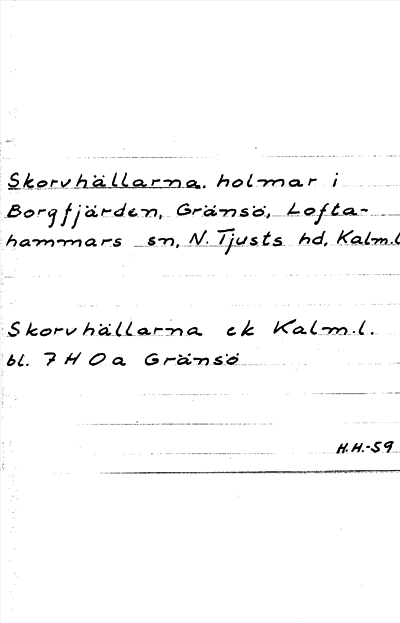 Skorvhällarna, holmar i
Borgfjärden, Gränsö, Lofta-
hammars sn, N. Tjusts hd, Kalm.l
Skorvhällarna ek Kalm.l.
bl. 7 H 0 a Gränsö
H.H.-59